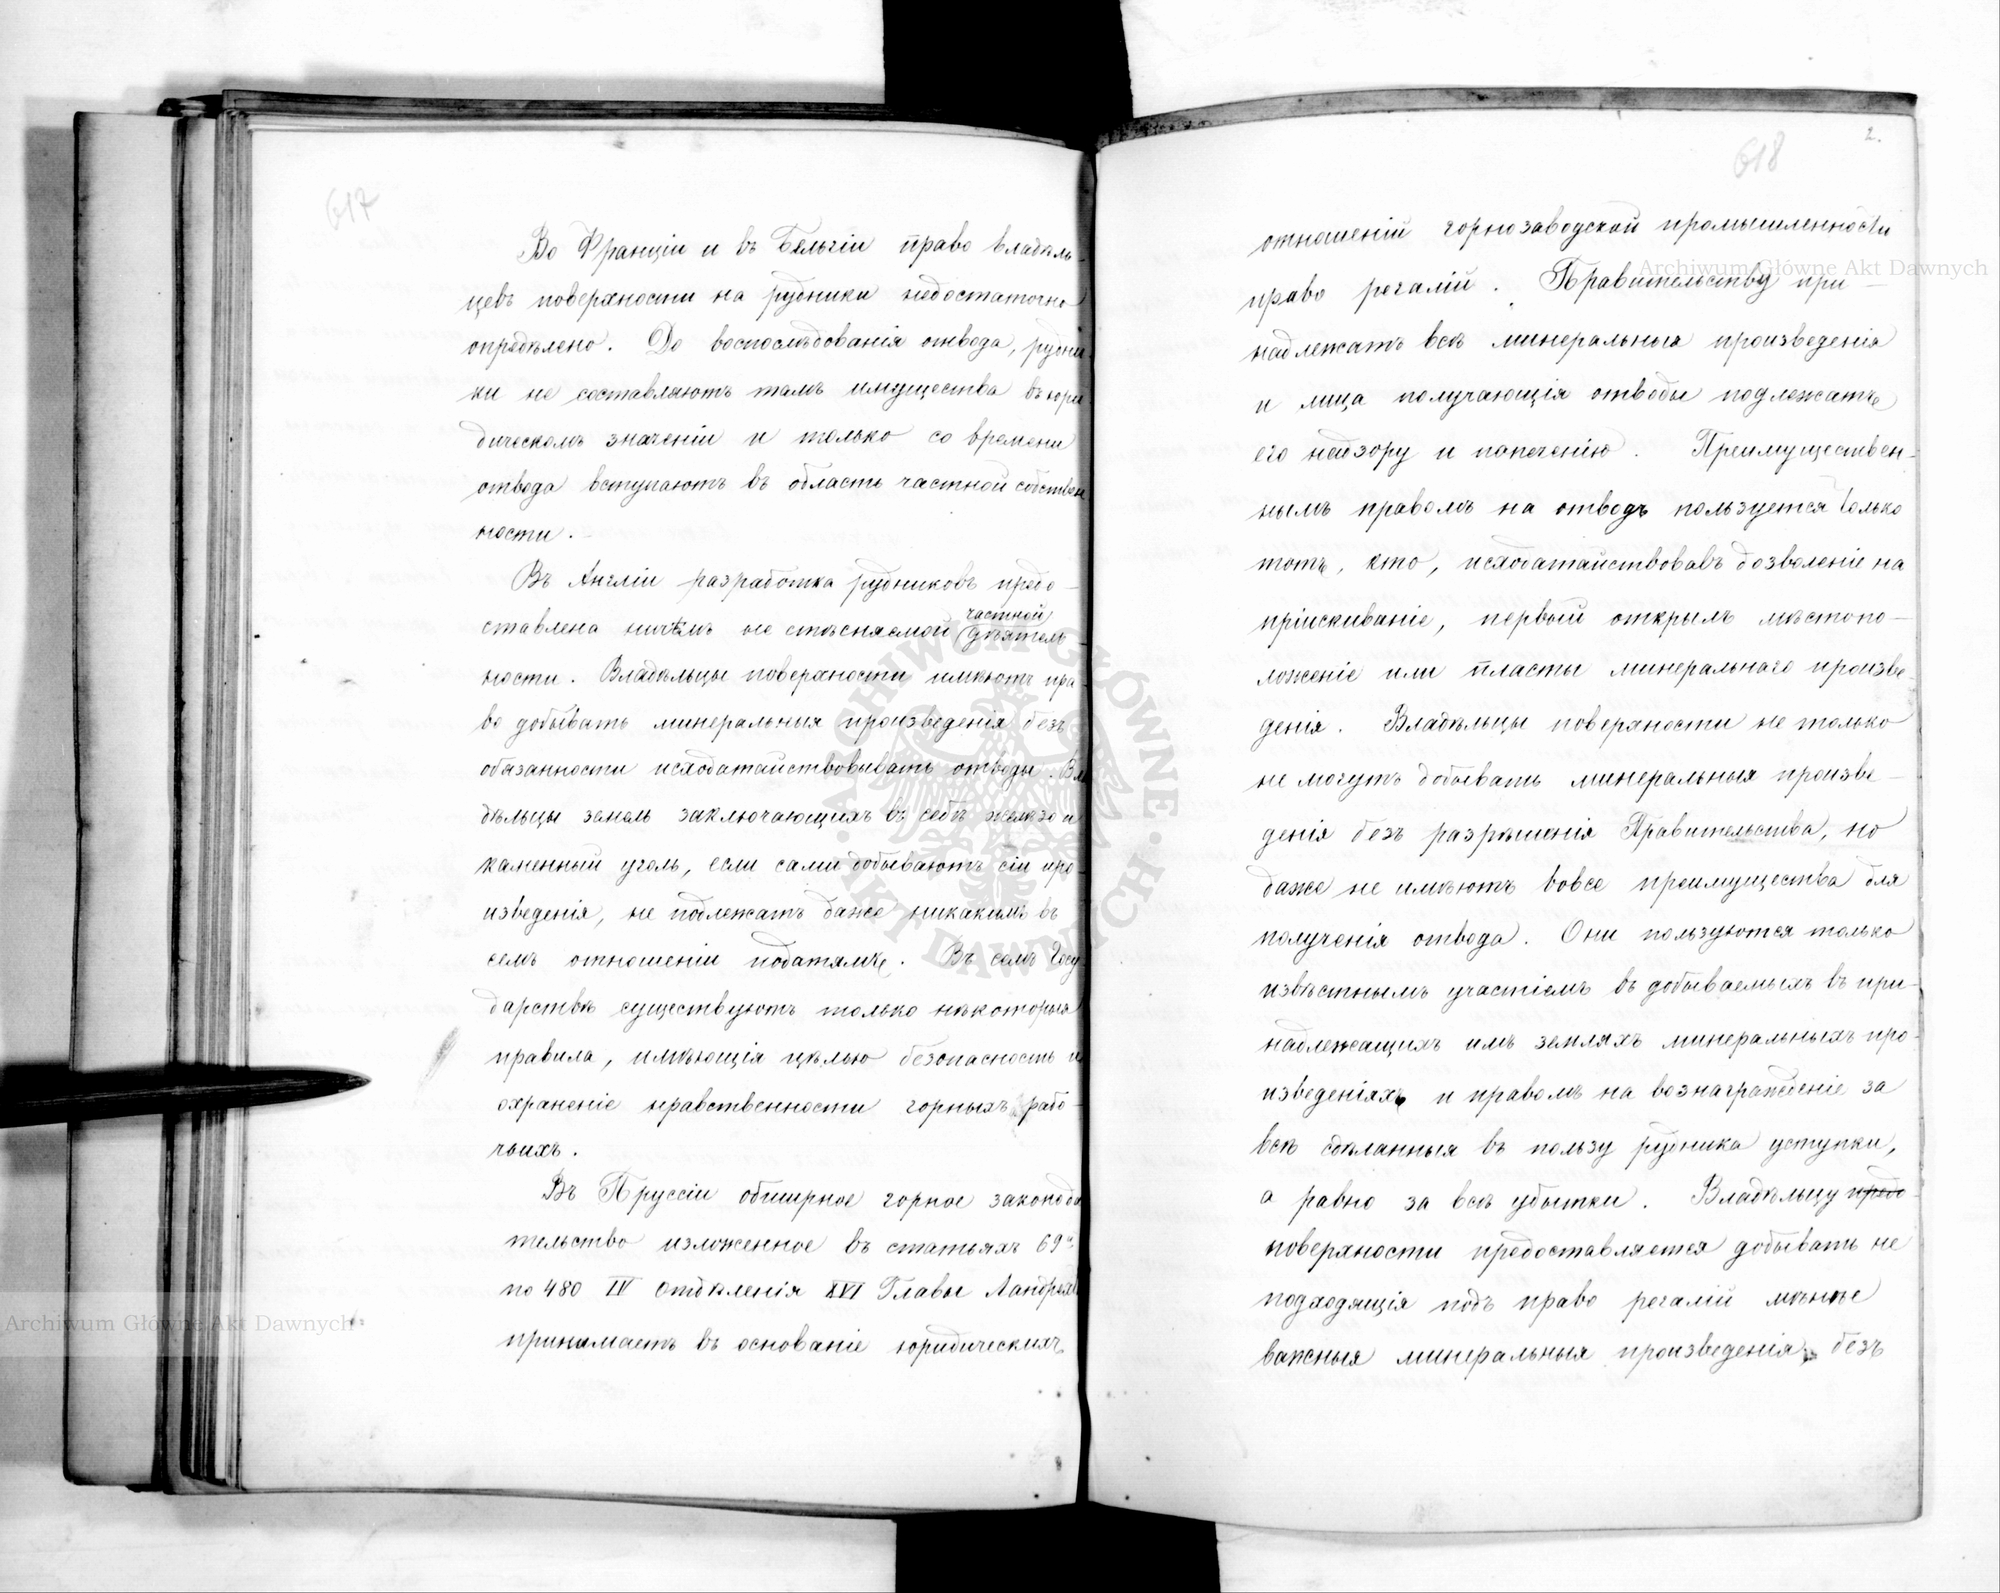 617
Во Франціи и въ Бельгіи право владѣль-
цевъ поверхности на рудники недостаточно
опредѣлено. До воспослѣдованія отвода, рудни
ки не составляютъ тамъ имущества въ юри
дическомъ значеніи и только со времени
отвода вступаютъ въ область частной собствен
ности.
Въ Англіи разработка рудниковъ предо-
ставлена ничѣмъ не стѣсняемой частной дѣятель-
ности. Владѣльцы поверхности имѣютъ пра-
во добывать минеральныя произведенія безъ
обязанности исходатайствовывать отводы. Вла
дѣльцы земель заключающихъ въ себѣ желѣзо и
каменный уголь, если сами добываютъ сіи про-
изведенія, не подлежатъ даже никакимъ въ
семъ отношеніи податямъ. Въ семъ Госу
дарствѣ существуютъ только нѣкоторыя
правила, имѣющія цѣлью безопасность и
охраненіе нравственности горныхъ рабо-
чихъ.
Въ Пруссіи обширное горное законода
тельство изложенное въ статьяхъ 69ой
по 480 IV Отдѣленія XVI Главы Ландрехта
принимаетъ въ основаніе юридическихъ
2.
618
отношеній горнозаводской промышленности
право регалій. Правительству при-
надлежатъ всѣ минеральныя произведенія
и лица получающія отводы подлежатъ
его надзору и попеченію. Преимуществен-
нымъ правомъ на отводъ пользуется только
тотъ, кто, исходатайствовавъ дозволеніе на
пріискиваніе, первый открылъ мѣстопо-
ложеніе или пласты минеральнаго произве-
денія. Владѣльцы поверхности не только
не могутъ добывать минеральныя произве-
денія безъ разрѣшенія Правительства, но
даже не имѣютъ вовсе преимущества для
полученія отвода. Они пользуются только
извѣстнымъ участіемъ въ добываемыхъ въ при-
надлежащихъ имъ земляхъ минеральныхъ про-
изведеніяхъ и правомъ на вознагражденіе за
всѣ сдѣланныя въ пользу рудника уступки,
а равно за всѣ убытки. Владѣльцу предо-
поверхности предоставляется добывать не
подходящія подъ право регалій менѣе
важныя минеральныя произведенія, безъ
Archiwum Główne Akt Dawnych
Archiwum Główne Akt Dawnych
ARCHIWUM GŁÓWNE AKT DAWNYCH